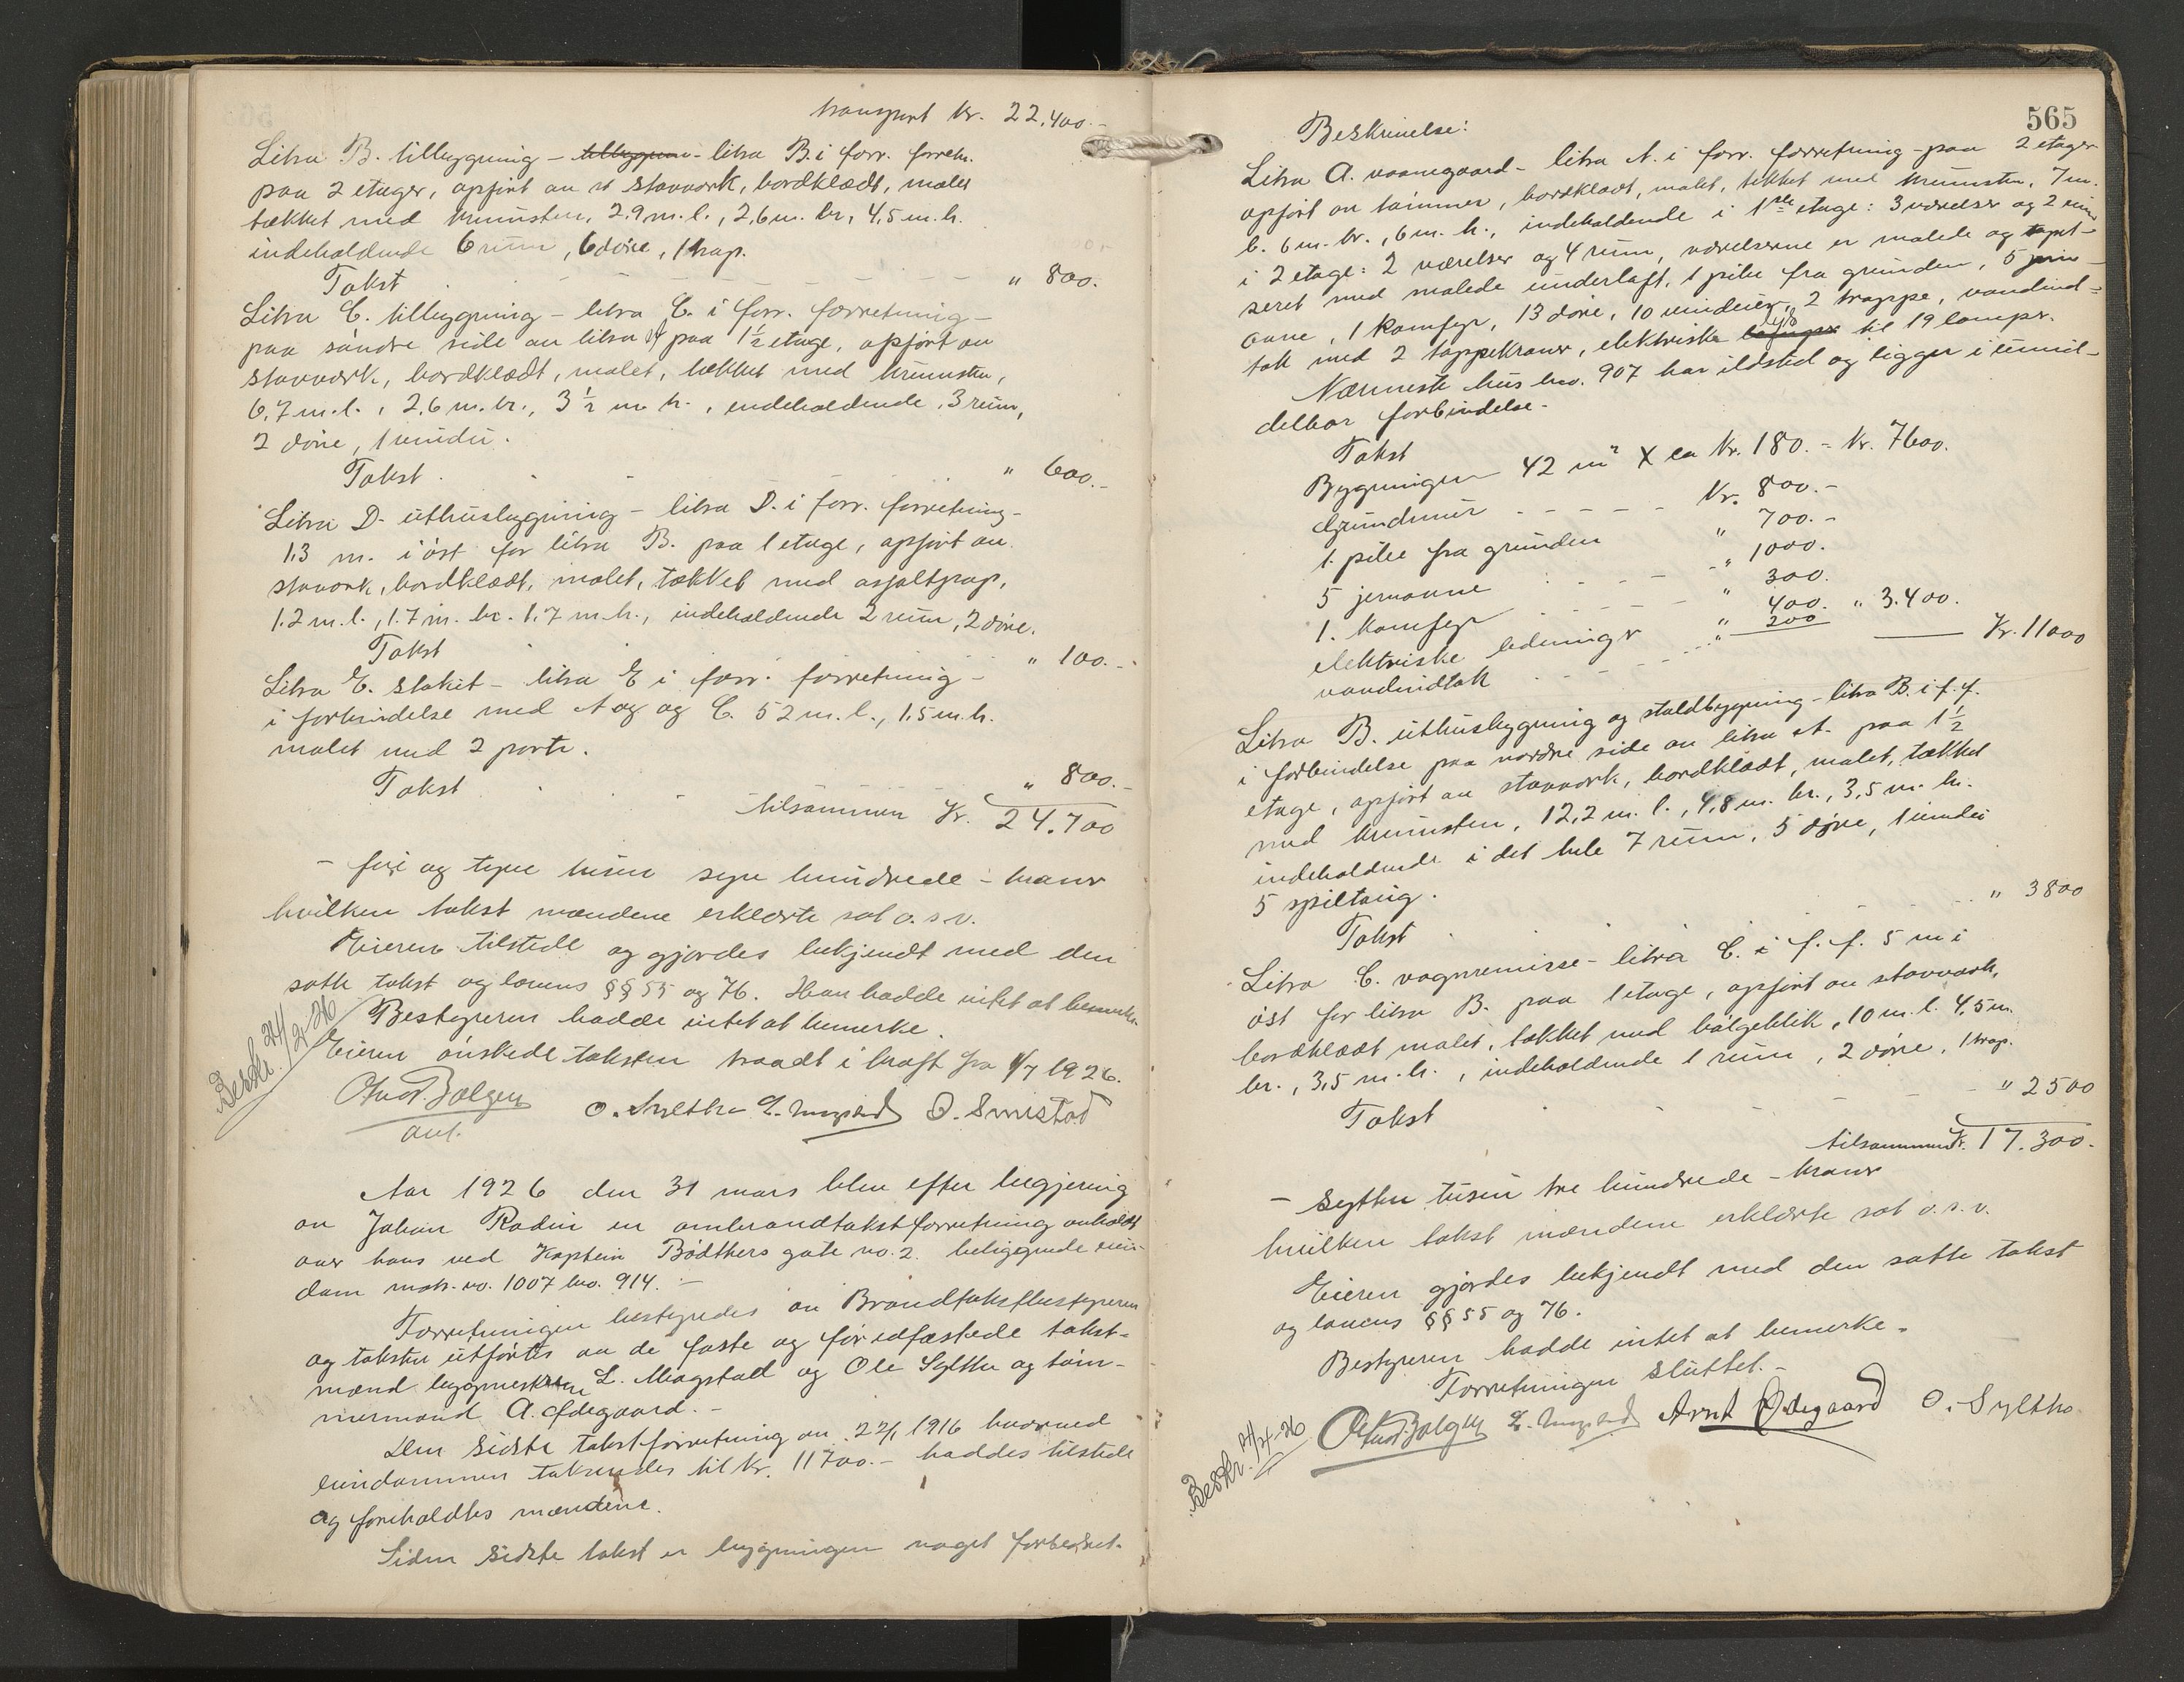 transport Kr. 22.400.-
Litra B. tilbygning - tilbygning - litra B. i forr. forretn.
paa 2 etager, opført av st stavverk, bordklædt, malet
tækket med krumsten, 2.9 m. l., 2,6 m. br., 4,5 m. h.
indeholdende 6 rum, 6 døre, 1 trap.
Takst " 800.
Litra C. tilbygning - litra C. i forr. forretning -
paa søndre side av litra A paa 1½ etage, opført av
stavverk, bordklædt, malet, tækket med krumsten,
6,7 m. l., 2,6 m. br., 3½ m h., indeholdende 3 rum,
2 døre, 1 vindu.
Takst " 600.-
Litra D. uthusbygning - litra D. i forr. forretning -
1.3 m. i øst for litra B. paa 1 etage, opført av
stavverk, bordklædt, malet, tækket med asfaltpap,
1.2 m. l., 1.7 m. br. 1.7 m. h., indeholdende 2 rum, 2 døre.
Takst " 100.-
Litra E. stakit - litra E i forr. forretning -
i forbindelse med A og og C. 52 m. l., 1.5 m. h.
malet med 2 porte.
Takst " 800.-
tilsammen Kr. 24.700
- fire og tyve tusen syv hundrede - kroner
hvilken takst mændene erklærte sat o.s.v.
Eieren tilstede og gjordes bekjendt med den
satte takst og lovens §§ 55 og 76. Han hadde intet at bemerke.
Bestyreren hadde intet at bemerke.
Eieren ønskede taksten traadt i kraft fra 1/7 1926.
Beskr. 24/2-26
O. Syltha L. Magstad O. Smistad
Aar 1926 den 31 mars blev efter begjæring
av Johan Rodin en ombrandtakstforretning avholdt
over hans ved Kaptein Bødtkers gate no. 2. beliggende eien-
dom matr. no. 1007 bno. 914. -
Forretningen bestyredes av Brandtakstbestyreren
og taksten utførtes av de faste og før edfæstede takst-
mænd bygmestrene L. Magstad og Ole Syltha og tøm-
mermand A. Ødegaard. -
Den sidste takstforretning av 22/1 1916 hvorved
eiendommen takseredes til Kr. 11700.- haddes tilstede
og foreholdtes mændene.
Siden sidste takst er bygningen noget forbedret.
565
Beskrivelse:
Litra A. vaaningaard - litra A. i forr. forretning - paa 2 etager
opført av tømmer, bordklædt, malet, tækket med krumsten, 7 m.
l. 6 m. br., 6 m. h., indeholdende i 1ste etage: 3 værelser og 2 rum
i 2 etage: 2 værelser og 4 rum, værelserne er malede og tapet-
seret med malede underloft, 1 pibe fra grunden, 5 jern-
ovne, 1 komfyr, 13 døre, 10 vinduer, 2 trappe, vandind-
tak med 2 tappekraner, elektriske lamper lys til 19 lamper.
Nærmeste hus bno. 907 har ildsted og ligger i umid-
delbar forbindelse.
Takst
Bygningen 42 m² X ca Kr. 180. - Kr. 7600.
Grundmur Kr. 800.-
1. pibe fra grunden " 700.-
5 jernovne " 1000.
1. komfyr " 300.
elektriske ledninger " 400. " 3.400.
vandindtak " 200 Kr. 11000
Litra B. uthusbygning og staldbygning - litra B. i f. f.
i forbindelse paa nordre side av litra A. paa 1½
etage, opført av stavverk, bordklædt, malet, tækket
med krumsten, 12,2 m. l., 4,8 m. br., 3,5 m. h.
indeholdende i det hele 7 rum, 5 døre, 1 vindu
5 spiltaug.
Takst " 3800
Litra C. vognremisse - litra C. i f. f. 5 m i
øst for litra B. paa 1 etage, opført av stavverk,
bordklædt malet, tækket med bølgeblik, 10 m. l. 4,5 m.
br., 3,5 m. h., indeholdende 1 rum, 2 døre, 1 trap.
Takst " 2500
tilsammen Kr. 17.300.
- sytten tusen tre hundrede - kroner
hvilken takst mændene erklærte sat o.s.v.
Eieren gjordes bekjendt med den satte takst
og lovens §§ 55 og 76.
Bestyreren hadde intet at bemerke.
Forretningen sluttet. -
L. Magstad Arnt Ødegaard O. Syltha